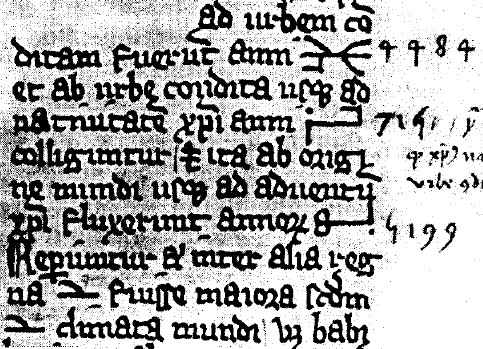 ad urbem cō
ditam fuerūt anni 4484
et ab urbe condita usqꝫ ad
natiuitatē xp̄i anni 715
colliguntur ita ab origi
ne mundi usqꝫ ad aduentū
xp̄i fluxerunt annoꝝ 5199
Repiuntur inter alia reg
na fuisse maiora scdm
climata mundi babi